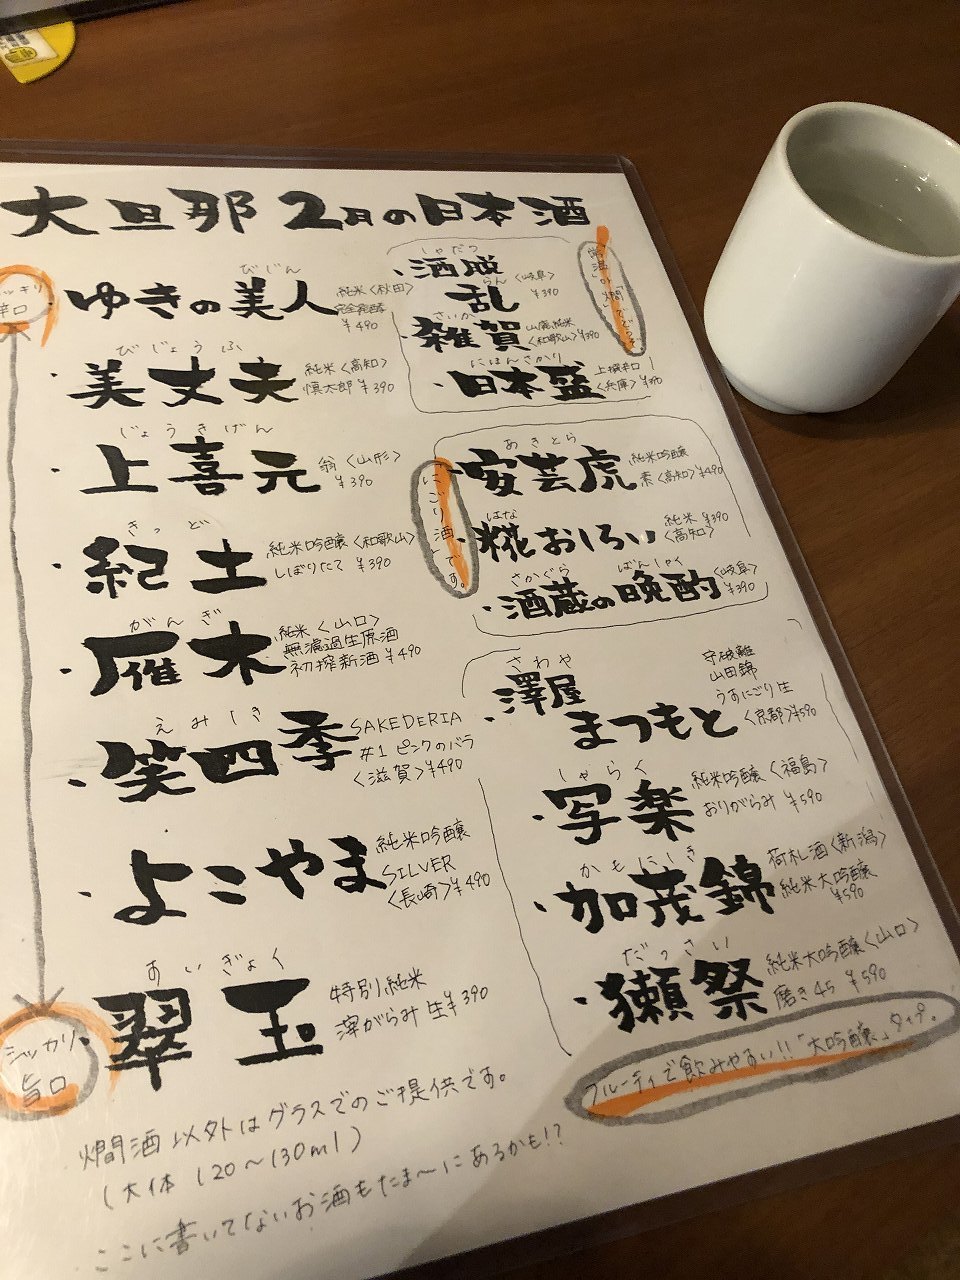 大旦那 2月の日本酒
スッキリ
辛口
びじん
・ゆきの美人
純米〈秋田〉
完全発酵
¥490
びじょうふ
・美丈夫
純米〈高知〉
慎太郎 ¥390
じょうきげん
・上喜元
翁〈山形〉
¥390
きっど
・紀土
純米吟醸〈和歌山〉
しぼりたて ¥390
がんぎ
・雁木
純米〈山口〉
無濾過生原酒
初搾新酒 ¥490
えみしき
・笑四季
SAKEDERIA
#1 ピンクのバラ
〈滋賀〉¥490
・よこやま
純米吟醸
SILVER
〈長崎〉¥490
すいぎょく
・翠玉
特別純米
滓がらみ 生 ¥390
シッカリ
旨口
しゃだつ
・洒脱
らん
乱
〈岐阜〉
¥390
さいか
・雑賀
山廃純米
〈和歌山〉¥390
にほんさかり
・日本盛
上撰辛口
〈兵庫〉
常温か「燗」でどうぞ
にごり酒です。
あきとら
・安芸虎
純米吟醸
素〈高知〉¥490
はな
・糀おしろい
純米 ¥390
〈高知〉
さかぐら ばんしゃく
・酒蔵の晩酌
〈岐阜〉
¥390
さわや
・澤屋
まつもと
守破離
山田錦
うすにごり生
〈京都〉¥590
しゃらく
・写楽
純米吟醸〈福島〉
おりがらみ ¥590
かもにしき
・加茂錦
荷札酒〈新潟〉
純米大吟醸
¥590
だっさい
・獺祭
純米大吟醸〈山口〉
磨き45 ¥590
フルーティで飲みやすい!!「大吟醸」タイプ。
燗酒以外はグラスでのご提供です。
(大体 120〜130ml)
ここに書いてないお酒もたま〜にあるかも!?